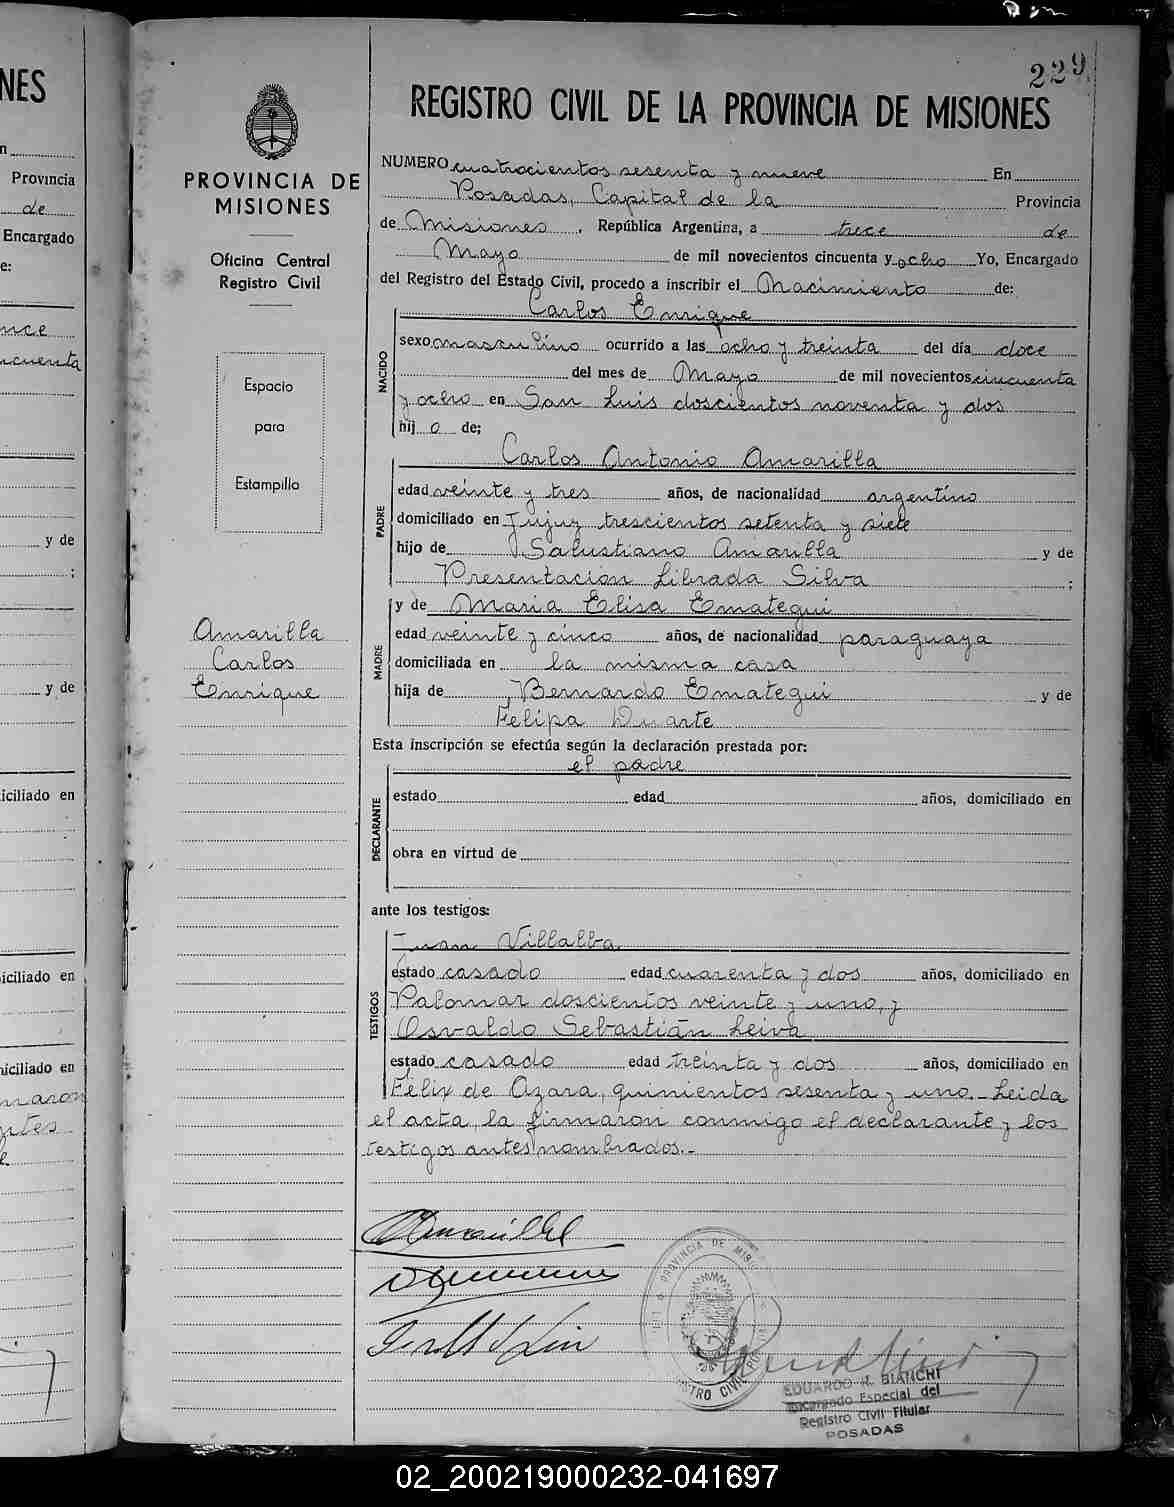 NES
n
Provincia
de
Encargado
e:
nce
ncuenta
y de
;
y de
iciliado en
iciliado en
niciliado en
maron
ntes
229
PROVINCIA DE
MISIONES
Oficina Central
Registro Civil
Espacio
para
Estampilla
Amarilla
Carlos
Enrique
REGISTRO CIVIL DE LA PROVINCIA DE MISIONES
NUMERO cuatrocientos sesenta y nueve En
Posadas, Capital de la Provincia
de Misiones, República Argentina, a trece de
Mayo de mil novecientos cincuenta y ocho Yo, Encargado
del Registro del Estado Civil, procedo a inscribir el Nacimiento de:
NACIDO
Carlos Enrique
sexo masculino ocurrido a las ocho y treinta del día doce
del mes de Mayo de mil novecientos cincuenta
y ocho en San Luis doscientos noventa y dos
hij o de;
PADRE
Carlos Antonio Amarilla
edad veinte y tres años, de nacionalidad argentino
domiciliado en Jujuy trescientos setenta y siete
hijo de Salustiano Amarilla y de
Presentación Librada Silva ;
MADRE
y de Maria Elisa Emategui
edad veinte y cinco años, de nacionalidad paraguaya
domiciliada en la misma casa
hija de Bernardo Emategui y de
Felipa Duarte
Esta inscripción se efectúa según la declaración prestada por:
DECLARANTE
el padre
estado edad años, domiciliado en
obra en virtud de
ante los testigos:
TESTIGOS
Juan Villalba
estado casado edad cuarenta y dos años, domiciliado en
Palomar doscientos veinte y uno, y
Osvaldo Sebastián Leiva
estado casado edad treinta y dos años, domiciliado en
Félix de Azara, quinientos sesenta y uno.- Leida
el acta, la firmaron conmigo el declarante y los
testigos antes nombrados.-
PROVINCIA DE MISIONES
REGISTRO CIVIL
EDUARDO R. BIANCHI
Encargado Especial del
Registro Civil Titular
POSADAS
02_200219000232-041697